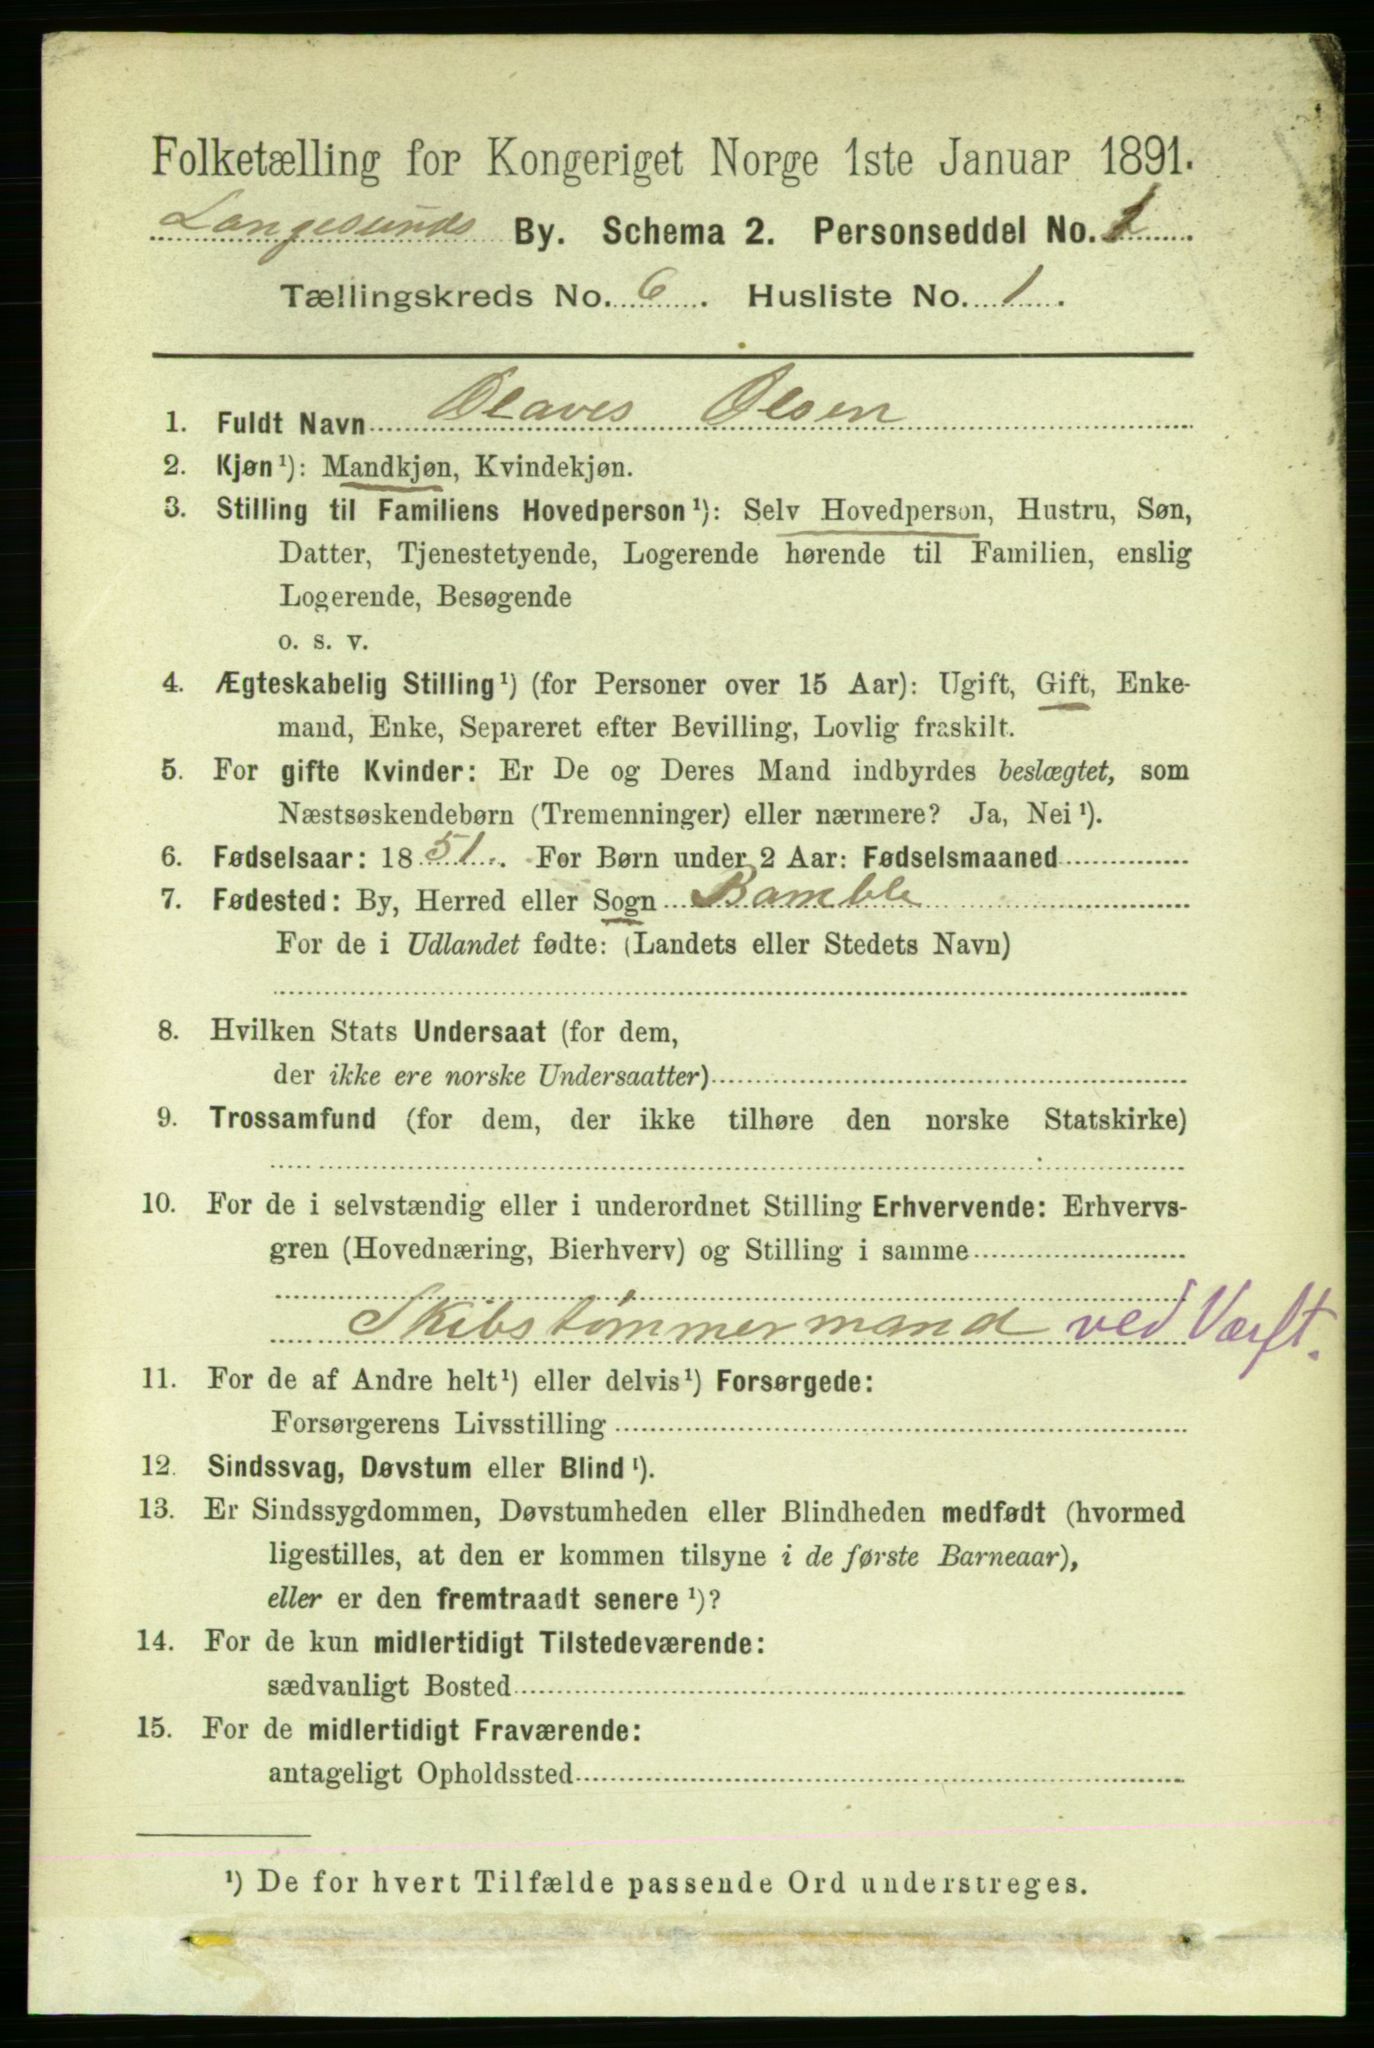 Folketælling for Kongeriget Norge 1ste Januar 1891.
Langesunds By. Schema 2. Personseddel No.
Tællingskreds No. 6. Husliste No. 1.
1. Fuldt Navn Olaves Olsen
2. Kjøn¹): Mandkjøn, Kvindekjøn.
3. Stilling til Familiens Hovedperson¹): Selv Hovedperson, Hustru, Søn,
Datter, Tjenestetyende, Logerende hørende til Familien, enslig
Logerende, Besøgende
o. s. v.
4. Ægteskabelig Stilling¹) (for Personer over 15 Aar): Ugift, Gift, Enke-
mand, Enke, Separeret efter Bevilling, Lovlig fraskilt.
5. For gifte Kvinder: Er De og Deres Mand indbyrdes beslægtet, som
Næstsøskendebørn (Tremenninger) eller nærmere? Ja, Nei¹).
6. Fødselsaar: 1851. For Børn under 2 Aar: Fødselsmaaned
7. Fødested: By, Herred eller Sogn Bamble
For de i Udlandet fødte: (Landets eller Stedets Navn)
8. Hvilken Stats Undersaat (for dem,
der ikke ere norske Undersaatter)
9. Trossamfund (for dem, der ikke tilhøre den norske Statskirke)
10. For de i selvstændig eller i underordnet Stilling Erhvervende: Erhvervs-
gren (Hovednæring, Bierhverv) og Stilling i samme
Skibstømmermand ved Værft.
11. For de af Andre helt¹) eller delvis¹) Forsørgede:
Forsørgerens Livsstilling
12. Sindssvag, Døvstum eller Blind¹).
13. Er Sindssygdommen, Døvstumheden eller Blindheden medfødt (hvormed
ligestilles, at den er kommen tilsyne i de første Barneaar),
eller er den fremtraadt senere¹)?
14. For de kun midlertidigt Tilstedeværende:
sædvanligt Bosted
15. For de midlertidigt Fraværende:
antageligt Opholdssted
¹) De for hvert Tilfælde passende Ord understreges.